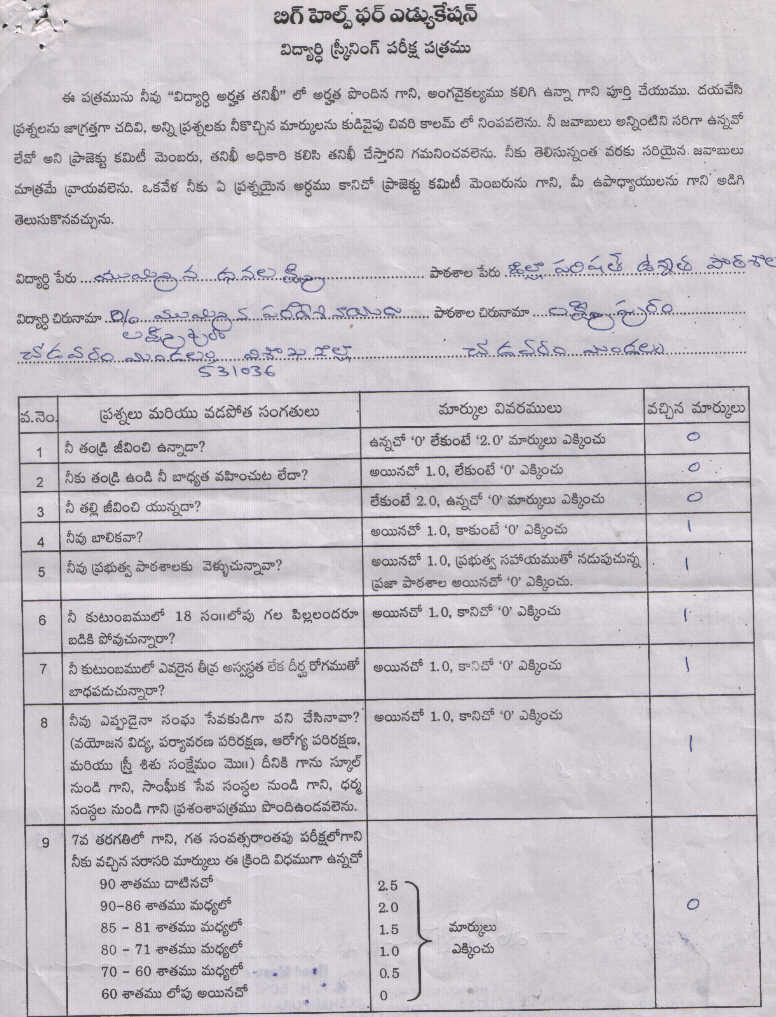 బిగ్ హెల్ప్ ఫర్ ఎడ్యుకేషన్
విద్యార్థి స్క్రీనింగ్ పరీక్ష పత్రము
ఈ పత్రమును నీవు “విద్యార్థి అర్హత తనిఖీ” లో అర్హత పొందిన గాని, అంగవైకల్యము కలిగి ఉన్నా గాని పూర్తి చేయుము. దయచేసి
ప్రశ్నలను జాగ్రత్తగా చదివి, అన్ని ప్రశ్నలకు నీకొచ్చిన మార్కులను కుడివైపు చివరి కాలమ్ లో నింపవలెను. నీ జవాబులు అన్నింటిని సరిగా ఉన్నవో
లేవో అని ప్రాజెక్టు కమిటీ మెంబరు, తనిఖీ అధికారి కలిసి తనిఖీ చేస్తారని గమనించవలెను. నీకు తెలిసున్నంత వరకు సరియైన జవాబులు
మాత్రమే వ్రాయవలెను. ఒకవేళ నీకు ఏ ప్రశ్నయైన అర్థము కానిచో ప్రాజెక్టు కమిటీ మెంబరును గాని, మీ ఉపాధ్యాయులను గాని అడిగి
తెలుసుకొనవచ్చును.
విద్యార్థి పేరు ధనలక్ష్మి పాఠశాల పేరు జిల్లా పరిషత్ ఉన్నత పాఠశాల
విద్యార్థి చిరునామా D/o పరదేశినాయుడు పాఠశాల చిరునామా లక్ష్మీపురం
లక్ష్మీపురం
చోడవరం మండలం విశాఖ జిల్లా చోడవరం మండలం
531036
వ.నెం. ప్రశ్నలు మరియు వడపోత సంగతులు మార్కుల వివరములు వచ్చిన మార్కులు
1 నీ తండ్రి జీవించి ఉన్నాడా? ఉన్నచో ‘0’ లేకుంటే ‘2.0’ మార్కులు ఎక్కించు 0
2 నీకు తండ్రి ఉండి నీ బాధ్యత వహించుట లేదా? అయినచో 1.0, లేకుంటే ‘0’ ఎక్కించు 0
3 నీ తల్లి జీవించి యున్నదా? లేకుంటే 2.0, ఉన్నచో ‘0’ మార్కులు ఎక్కించు 0
4 నీవు బాలికవా? అయినచో 1.0, కాకుంటే ‘0’ ఎక్కించు 1
5 నీవు ప్రభుత్వ పాఠశాలకు వెళ్ళుచున్నావా? అయినచో 1.0, ప్రభుత్వ సహాయముతో నడుపుచున్న 1
ప్రజా పాఠశాల అయినచో ‘0’ ఎక్కించు.
6 నీ కుటుంబములో 18 సం॥లోపు గల పిల్లలందరూ అయినచో 1.0, కానిచో ‘0’ ఎక్కించు 1
బడికి పోవుచున్నారా?
7 నీ కుటుంబములో ఎవరైన తీవ్ర అస్వస్థత లేక దీర్ఘ రోగముతో అయినచో 1.0, కానిచో ‘0’ ఎక్కించు 1
బాధపడుచున్నారా?
8 నీవు ఎప్పుడైనా సంఘ సేవకుడిగా పని చేసినావా? అయినచో 1.0, కానిచో ‘0’ ఎక్కించు
(వయోజన విద్య, పర్యావరణ పరిరక్షణ, ఆరోగ్య పరిరక్షణ, 1
మరియు స్త్రీ శిశు సంక్షేమం మొ॥) దీనికి గాను స్కూల్
నుండి గాని, సాంఘీక సేవ సంస్థల నుండి గాని, ధర్మ
సంస్థల నుండి గాని ప్రశంశాపత్రము పొందిఉండవలెను.
9 7వ తరగతిలో గాని, గత సంవత్సరాంతపు పరీక్షలోగాని
నీకు వచ్చిన సరాసరి మార్కులు ఈ క్రింది విధముగా ఉన్నచో
90 శాతము దాటినచో 2.5
90-86 శాతము మధ్యలో 2.0 0
85 - 81 శాతము మధ్యలో 1.5 మార్కులు
80 - 71 శాతము మధ్యలో 1.0 ఎక్కించు
70 - 60 శాతము మధ్యలో 0.5
60 శాతము లోపు అయినచో 0